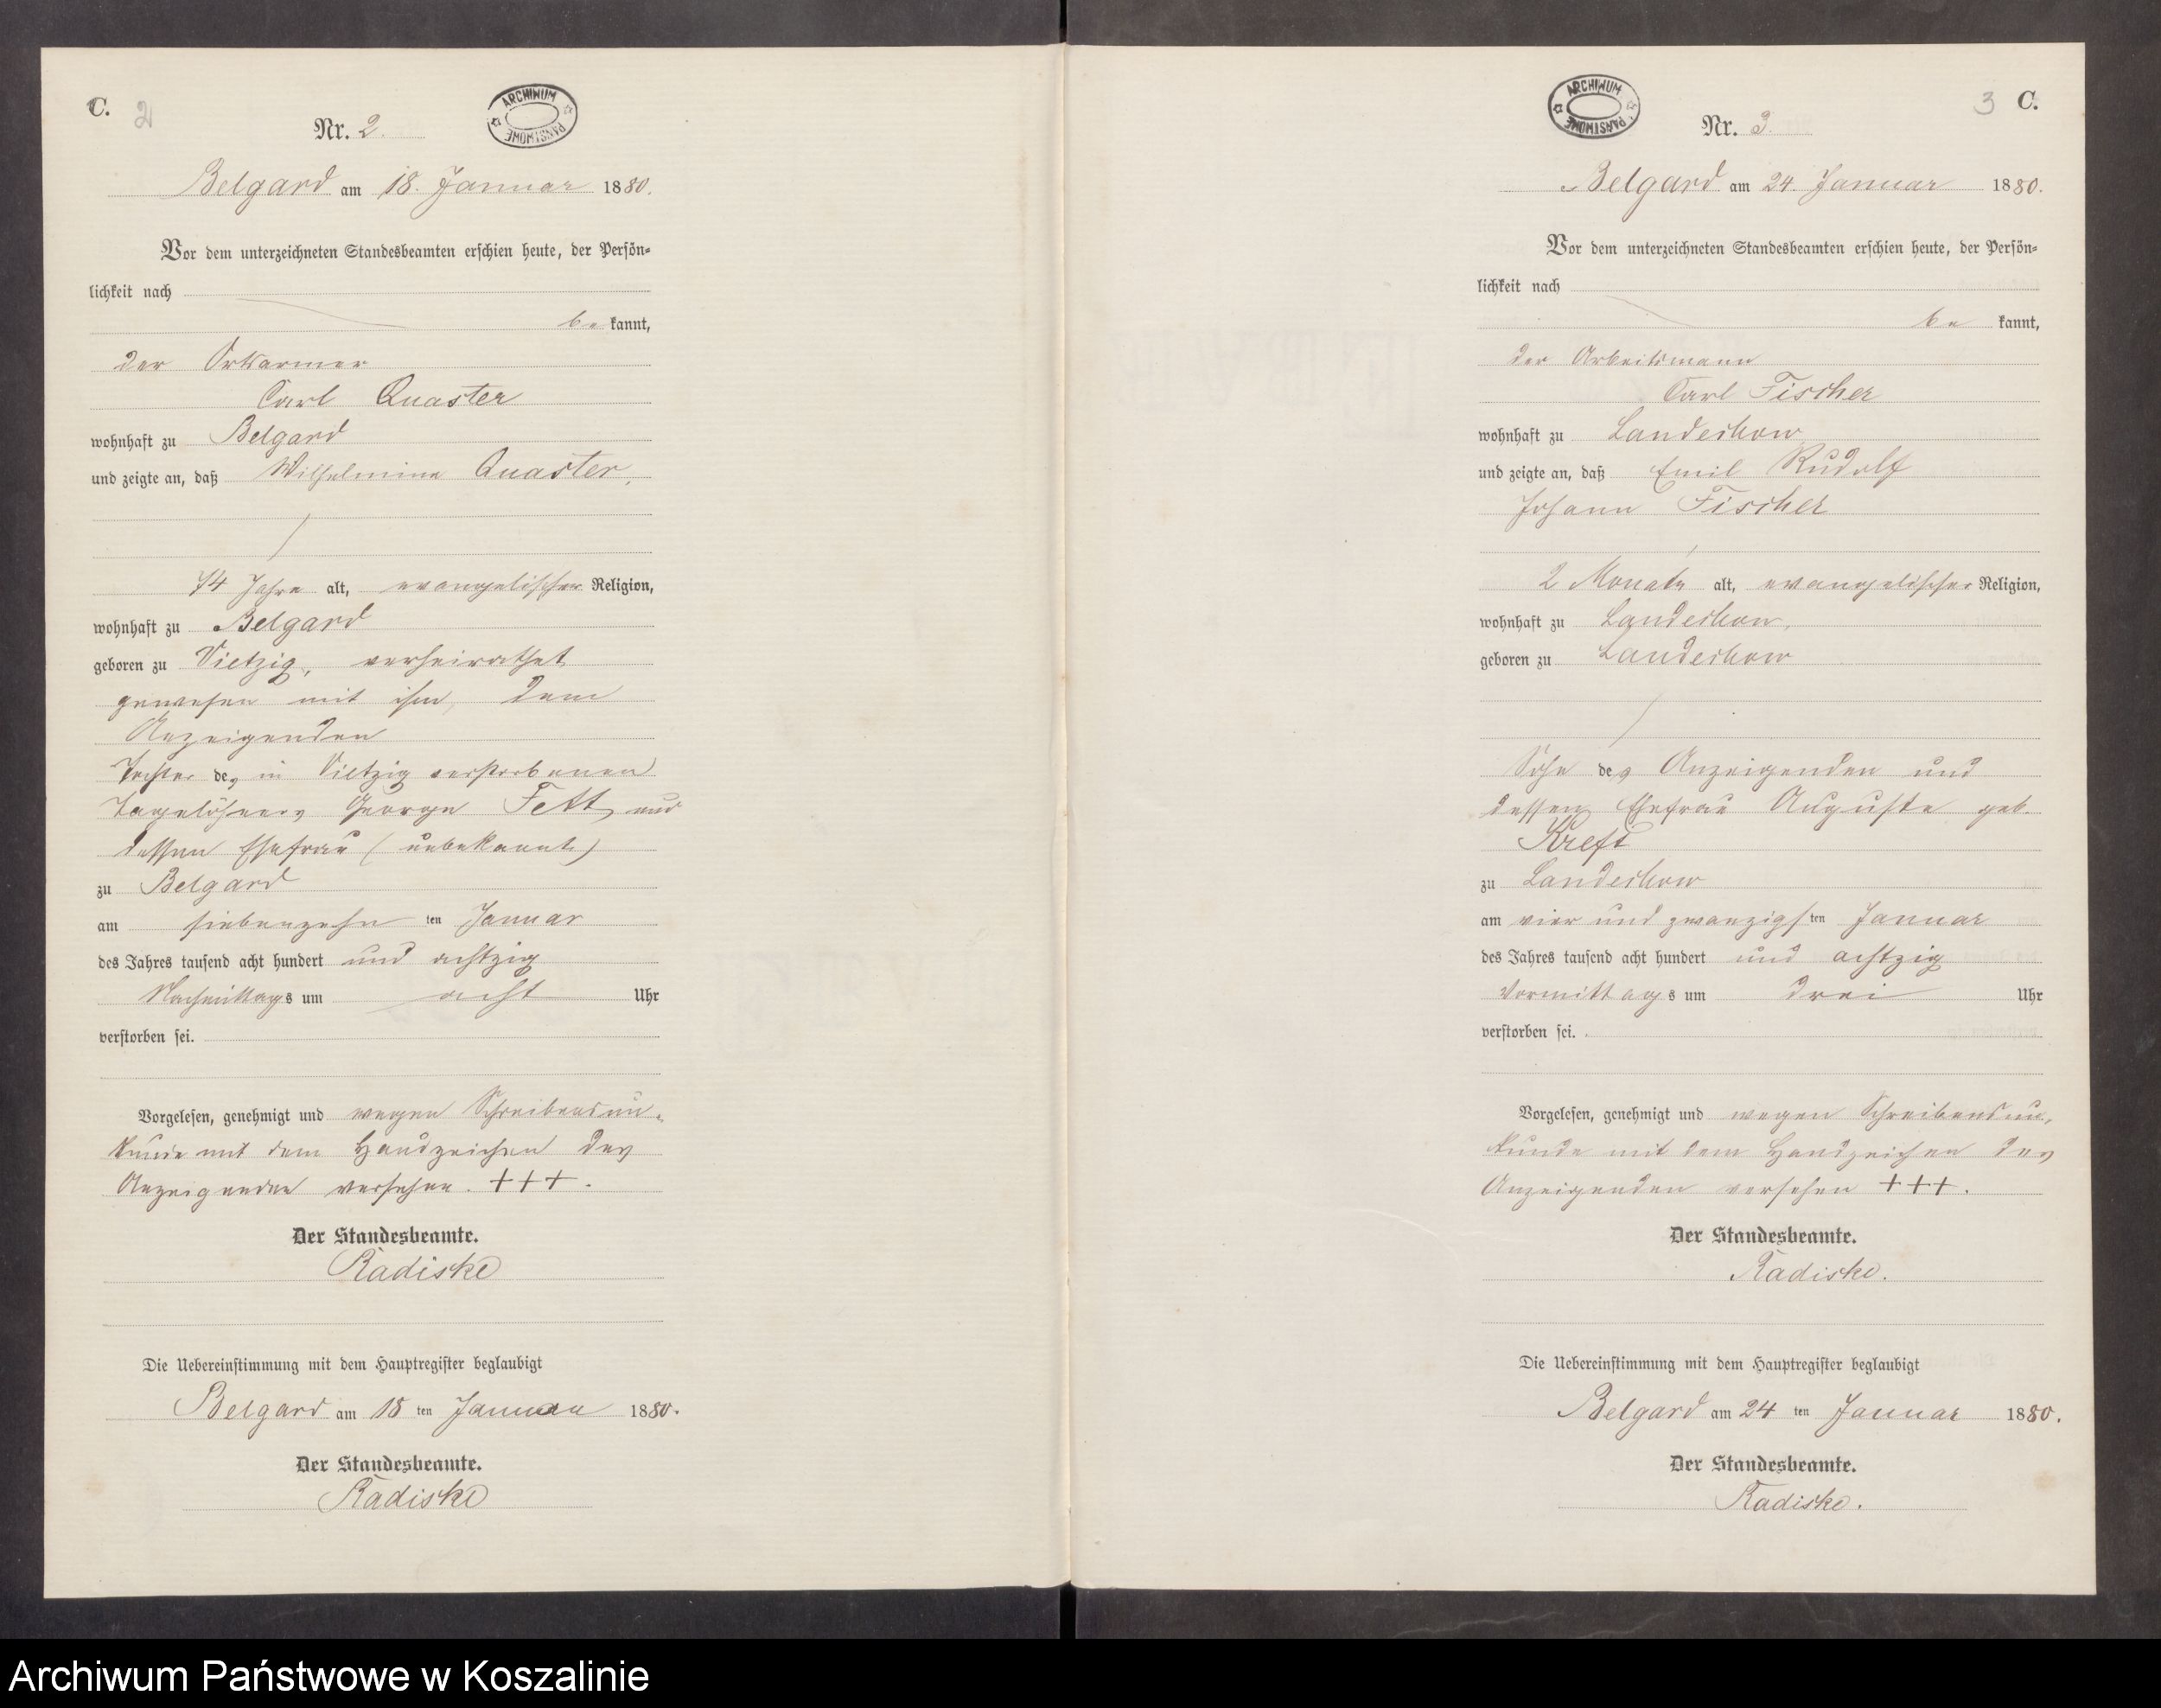 C. 2
ARCHIWUM PAŃSTWOWE
Nr. 2.
Belgard am 18. Januar 1880.
Vor dem unterzeichneten Standesbeamten erschien heute, der Persön-
lichkeit nach
be kannt,
der Ortsarmer
Carl Quaster
wohnhaft zu Belgard
und zeigte an, daß Wilhelmine Quaster,
74 Jahre alt, evangelischer Religion,
wohnhaft zu Belgard
geboren zu Vietzig, verheirathet
gewesen mit ihm, dem
Anzeigenden
Tochter des in Vietzig verstorbenen
Tagelöhners George Fett und
dessen Ehefrau (unbekannt)
zu Belgard
am siebenzehn ten Januar
des Jahres tausend acht hundert und achtzig
Nachmittags um acht Uhr
verstorben sei.
Vorgelesen, genehmigt und wegen Schreibensun-
kunde mit dem Handzeichen des
Anzeigenden versehen. +++.
Der Standesbeamte.
Radiske
Die Uebereinstimmung mit dem Hauptregister beglaubigt
Belgard am 18 ten Januar 1880.
Der Standesbeamte.
Radiske
3 C.
ARCHIWUM PAŃSTWOWE
Nr. 3.
Belgard am 24. Januar 1880.
Vor dem unterzeichneten Standesbeamten erschien heute, der Persön-
lichkeit nach
be kannt,
der Arbeitsmann
Carl Fischer
wohnhaft zu Landeckow
und zeigte an, daß Emil Rudolf
Johann Fischer
2 Monate alt, evangelischer Religion,
wohnhaft zu Landeckow,
geboren zu Landeckow
Sohn des Anzeigenden und
dessen Ehefrau Auguste geb.
Kreft
zu Landeckow
am vier und zwanzigs ten Januar
des Jahres tausend acht hundert und achtzig
Vormittags um drei Uhr
verstorben sei.
Vorgelesen, genehmigt und wegen Schreibensun-
kunde mit dem Handzeichen des
Anzeigenden versehen +++.
Der Standesbeamte.
Radiske.
Die Uebereinstimmung mit dem Hauptregister beglaubigt
Belgard am 24 ten Januar 1880.
Der Standesbeamte.
Radiske.
Archiwum Państwowe w Koszalinie